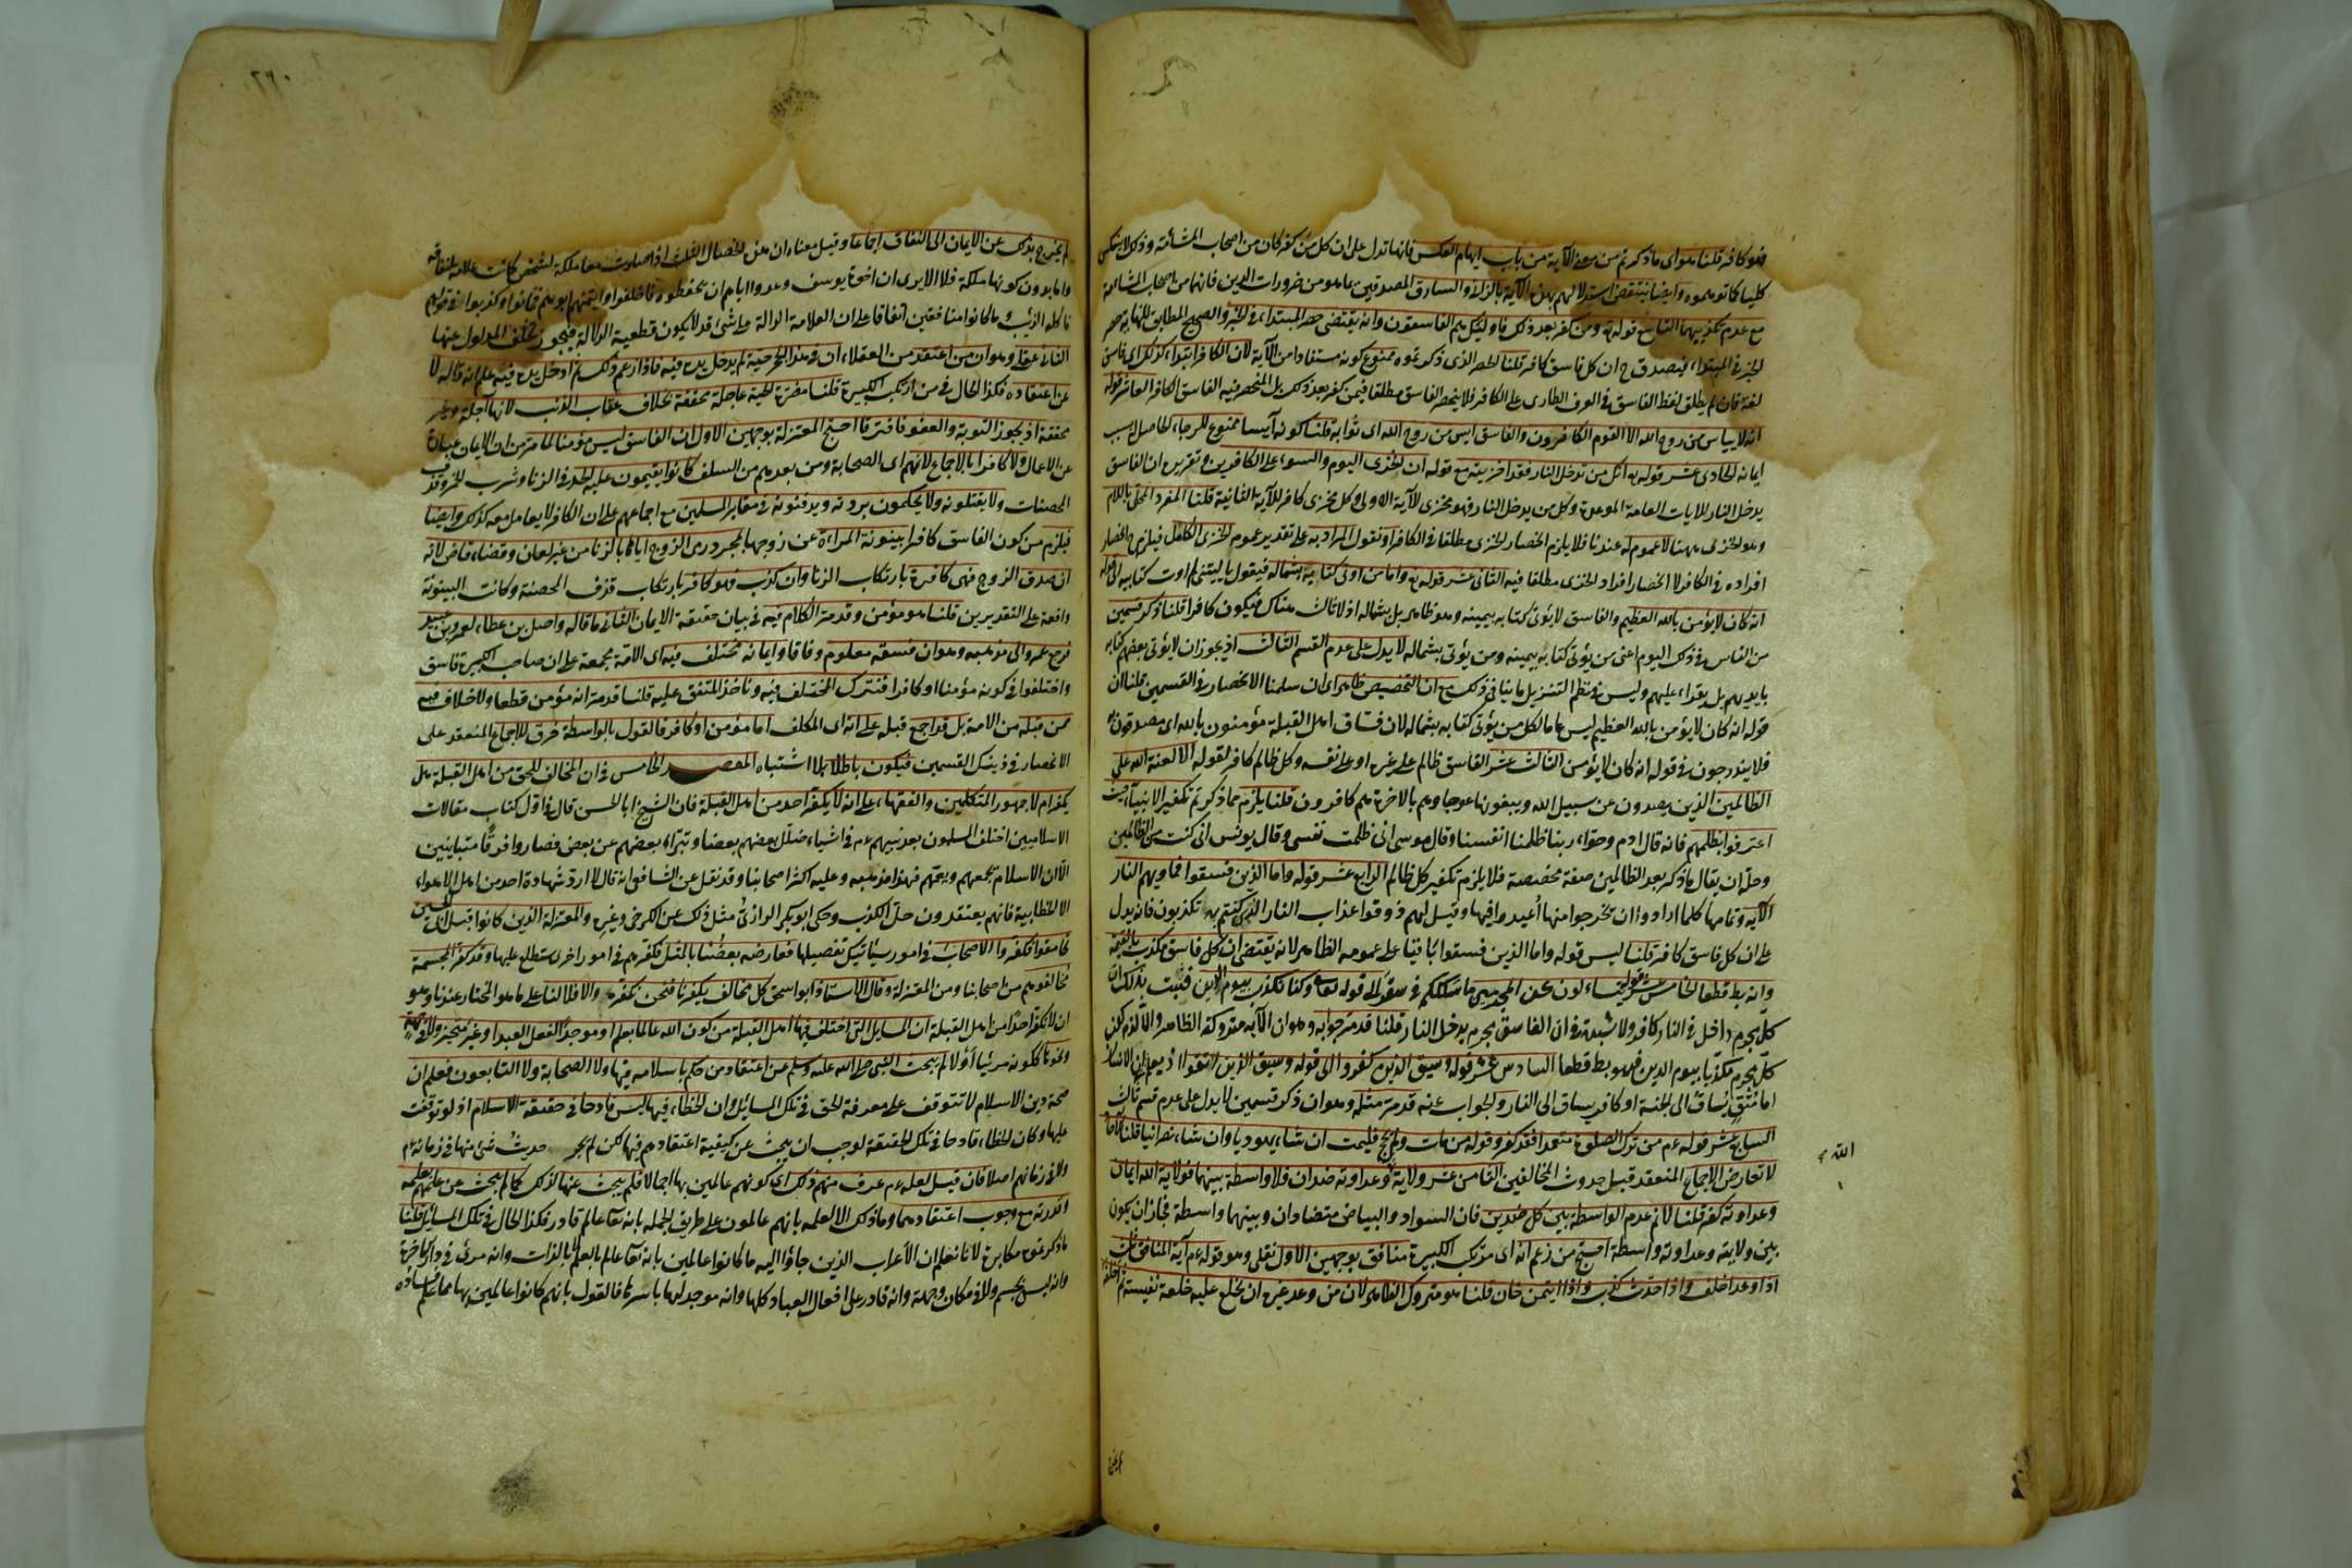 فهو كافر قلنا هو اى ما ذكرتم من معنى الآية من باب ايهام العكس فانها تدل على ان كل من كفر كان من اصحاب المشأمة وذلك لا ينعكس
كليا كما توهموه وايضا ينتقض استدلالهم بهذه الآية بالزانى والسارق المصدقين بما هو من ضرورات الدين فانهما من اصحاب المشأمة
مع عدم تكذيبهما التاسع قوله تع ومن كفر بعد ذلك فاولئك هم الفاسقون وانه يقتضى حصر المبتداء فى الخبر والصحيح المطابق للنهاية حصر
الخبر فى المبتداء فيصدق ح ان كل فاسق كافر قلنا الحصر الذى ذكرتموه ممنوع كونه مستفادا من الآية لان الكافر ابتداء كذلك اى فاسق
لغة فان لم يطلق لفظ الفاسق فى العرف الطارى على الكافر فلا ينحصر الفاسق مطلقا فيمن كفر بعد ذلك بل المنحصر فيه الفاسق الكافر العاشر قوله
انه لا ييأس من روح الله الا القوم الكافرون والفاسق ايس من روح الله اى ثوابه قلنا كونه آيسا ممنوع للرجاء الحاصل بسبب
ايمانه الحادى عشر قوله تع انك من تدخل النار فقد اخزيته مع قوله ان الخزى اليوم والسوء على الكافرين وتقريره ان الفاسق
يدخل النار للايات العامة الموعدة وكل من يدخل النار فهو مخزى للآية الاولى وكل مخزى كافر للآية الثانية قلنا المفرد المحلى باللام
وهو الخزى ههنا لا عموم له عندنا فلا يلزم انحصار الخزى مطلقا فى الكافر او نقول المراد به على تقدير عموم الخزى الكامل فيلزم ح انحصار
افراده فى الكافر لا انحصار افراد الخزى مطلقا فيه الثانى عشر قوله تع واما من اوتى كتابه بشماله فيقول يا ليتنى لم اوت كتابيه الى قوله
انه كان لا يؤمن بالله العظيم والفاسق لا يؤتى كتابه بيمينه وهو ظاهر بل بشماله اذ لا ثالث هناك فيكون كافرا قلنا ذكر قسمين
من الناس فى ذلك اليوم اعنى من يؤتى كتابه بيمينه ومن يؤتى بشماله لا يدل على عدم القسم الثالث اذ يجوز ان لا يؤتى بعضهم كتابه
بايديهم بل يقراء عليهم وليس فى نظم التنزيل ما ينافى ذلك مع ان التخصيص ظاهر اى ان سلمنا الانحصار فى القسمين قلنا ان
قوله انه كان لا يؤمن بالله العظيم ليس عاما لكل من يؤتى كتابه بشماله لان فساق اهل القبلة مؤمنون بالله اى مصدقون به
فلا يندرجون فى قوله انه كان لا يؤمن الثالث عشر الفاسق ظالم على غيره او على نفسه وكل ظالم كافر لقوله الا لعنة الله على
الظالمين الذين يصدون عن سبيل الله ويبغونها عوجا وهم بالاخرة هم كافرون قلنا يلزم مما ذكرتم تكفير الانبياء حيث
اعترفوا بظلمهم فانه قال ادم وحوّاء ربنا ظلمنا انفسنا وقال موسى انى ظلمت نفسى وقال يونس انى كنت من الظالمين
وحلّه ان يقال ما ذكر بعد الظالمين صفة مخصصة فلا يلزم تكفير كل ظالم الرابع عشر قوله واما الذين فسقوا فمأويهم النار
الآيه وتمامها كلما ارادوا ان يخرجوا منها اعيدوا فيها وقيل لهم ذوقوا عذاب النار الذى كنتم به تكذبون فانه يدل
على ان كل فاسق كافر قلنا ليس قوله واما الذين فسقوا باقيا على عمومه الظاهر لانه يقتضى ان كل فاسق مكذب بالقيمة
وانه بط قطعا الخامس عشر قوله يتساءلون عن المجرمين ما سلككم فى سقر الى قوله تعالى وكنا نكذب بيوم الدين فثبت بذلك ان
كل مجرم داخل فى النار كافر ولا شبهة فى ان الفاسق مجرم يدخل النار قلنا قد مر جوابه وهو ان الآيه متروكة الظاهر والا لزم كون
كل مجرم مكذبا بيوم الدين فهو بط قطعا السادس عشر قوله وسيق الذين كفروا الى قوله وسيق الذين اتقوا اذ يعلم ان الانسان
اما متقٍ يُساق الى الجنة او كافر يساق الى النار والجواب عنه قد مر مثله وهو ان ذكر قسمين لا يدل على عدم قسم ثالث
السابع عشر قوله عم من ترك الصلوة متعمدا فقد كفر وقوله من مات ولم يحج فليمت ان شاء يهوديا وان شاء نصرانيا قلنا الاحاد
لا تعارض الاجماع المنعقد قبل حدوث المخالفين الثامن عشر ولاية وعداوته ضدان فلا واسطة بينهما فولاية الله ايمان
الله
وعداوته كفر قلنا لا نم عدم الواسطة بين كل ضدين فان السواد والبياض متضادان وبينهما واسطة فجاز ان يكون
بين ولايته وعداوته واسطة احتج من زعم انه اى مرتكب الكبيرة منافق بوجهين الاول نقلى وهو قوله عم آية المنافق ثلث
اذا وعد اخلف واذا حدث كذب واذا ائتمن خان قلنا هو متروك الظاهر لان من وعد غيره ان يخلع عليه خلعة نفيسة ثم اخلف
٢٦٠
لم يخرج بذلك عن الايمان الى النفاق اجماعا وقيل معناه ان هذه الخصال الثلث اذا صارت معا ملكة لشخص كانت علامة لنفاقه
واما بدون كونها ملكة فلا الا يرى ان اخوة يوسف وعدوا اباهم ان يحفظوه فاخلفوا وائتمنهم ابوهم فخانوا وكذبوا فى قولهم
فاكله الذئب وما كانوا منافقين اتفاقا على ان العلامة الدالة على شئ قد لا يكون قطعية الدلالة فيجوز تخلف المدلول عنها
الثانى عقلى وهو ان من اعتقد من العقلاء ان فى هذا الجحر حية لم يدخل يده فيه فاذا زعم ذلك ثم ادخل يده فيه علم انه قاله لا
عن اعتقاده فكذا الحال فى من ارتكب الكبيرة قلنا مضرة الحية عاجلة محققة بخلاف عقاب الذنب لانها آجلة وغير
محققة اذ يجوز التوبة والعفو فافترقا احتج المعتزلة بوجهين الاول ان الفاسق ليس مؤمنا لما مر من ان الايمان عبارة
عن الاعمال ولا كافرا بالاجماع لانهم اى الصحابة ومن بعدهم من السلف كانوا يقيمون عليه الحد فى الزنا وشرب الخمر وقذف
المحصنات ولا يقتلونه ولا يحكمون بردته ويدفنونه فى مقابر المسلمين مع اجماعهم على ان الكافر لا يعامل معه كذلك وايضا
فيلزم من كون الفاسق كافرا بينونة المراءة عن زوجها بمجرد رمى الزوج اياها بالزنا من غير لعان وقضاء قاض لانه
ان صدق الزوج فهى كافرة بارتكاب الزنا وان كذب فهو كافر بارتكاب قذف المحصنة وكانت البينونة
واقعة على التقديرين قلنا هو مؤمن وقد مر الكلام فيه فى بيان حقيقة الايمان الثانى ما قاله واصل بن عطاء لعمرو بن عبيد
فرجع عمرو الى مذهبه وهو ان فسقه معلوم وفاقا وايمانه مختلف فيه اى الامة مجمعة على ان صاحب الكبيرة فاسق
واختلفوا فى كونه مؤمنا او كافرا فنترك المختلف فيه وناخذ المتفق عليه قلنا قد مر انه مؤمن قطعا ولا خلاف فيه
ممن قبله من الامة بل قد اجمع قبله على انه اى المكلف اما مؤمن او كافر فالقول بالواسطة خرق للاجماع المنعقد على
الانحصار فى ذينك القسمين فيكون باطلا بلا اشتباه المقصد الخامس فى ان المخالف للحق من اهل القبلة هل
يكفر ام لا جمهور المتكلمين والفقهاء على انه لا يكفر احد من اهل القبلة فان الشيخ ابا الحسن قال فى اول كتاب مقالات
الاسلاميين اختلف المسلمون بعد نبيهم عم فى اشياء ضلّل بعضهم بعضا وتبرّاء بعضهم عن بعض فصاروا فرقا متباينين
الا ان الاسلام يجمعهم ويعمّهم فهذا مذهبه وعليه اكثر اصحابنا وقد نقل عن الشافعى انه قال لا ارد شهادة احد من اهل الاهواء
الا الخطابية فانهم يعتقدون حلّ الكذب وحكى ابو بكر الرازى مثل ذلك عن الكرخى وغيره والمعتزلة الذين كانوا قبل ابى الحسين
تحامقوا فكفروا الاصحاب فى امور سيأتيك تفصيلها فعارضه بعضنا بالمثل فكفرهم فى امور اخرى ستطلع عليها وقد كفر المجسمة
مخالفوهم من اصحابنا ومن المعتزلة وقال الاستاذ ابو اسحق كل مخالف يكفرنا فنحن نكفره والا فلا لنا على ما هو المختار عندنا وهو
ان لا نكفر احدًا من اهل القبلة ان المسايل التى اختلف فيها اهل القبلة من كون الله عالما بعلم او موجدا لفعل العبد او غير متحيز ولا فى جهة
ونحوها ككونه مرئيا أوْ لا لم يبحث النبى صلى الله عليه وسلم عن اعتقاد من حكم باسلامه فيها ولا الصحابة ولا التابعون فعلم ان
صحة دين الاسلام لا تتوقف على معرفة الحق فى تلك المسائل وان الخطاء فيها ليس قادحا فى حقيقة الاسلام اذ لو توقفت
عليها وكان الخطاء قادحا فى تلك الحقيقة لوجب ان يبحث عن كيفية اعتقادهم فيها لكن لم يجر حديثُ شئ منها فى زمانه عم
ولا فى زمانهم اصلا فان قيل لعله عم عرف منهم ذلك اى كونهم عالمين بها اجمالا فلم يبحث عنها لذلك كما لم يبحث عن علمهم بعلمه
وقدرته مع وجوب اعتقادهما وما ذلك الا لعلمه بانهم عالمون على طريق الجملة بانه تعا عالم قادر فكذا الحال فى تلك المسائل قلنا
ما ذكرتموه مكابرة لانا نعلم ان الأعراب الذين جاؤا اليه ما كانوا عالمين بانه تعا عالم بالعلم لا بالذات وانه مرئى فى دار الآخرة
وانه ليس بجسم ولا فى مكان وجهة وانه قادر على افعال العباد كلها وانه موجد لها باسرها فالقول بانهم كانوا عالمين بها مما علم فساده